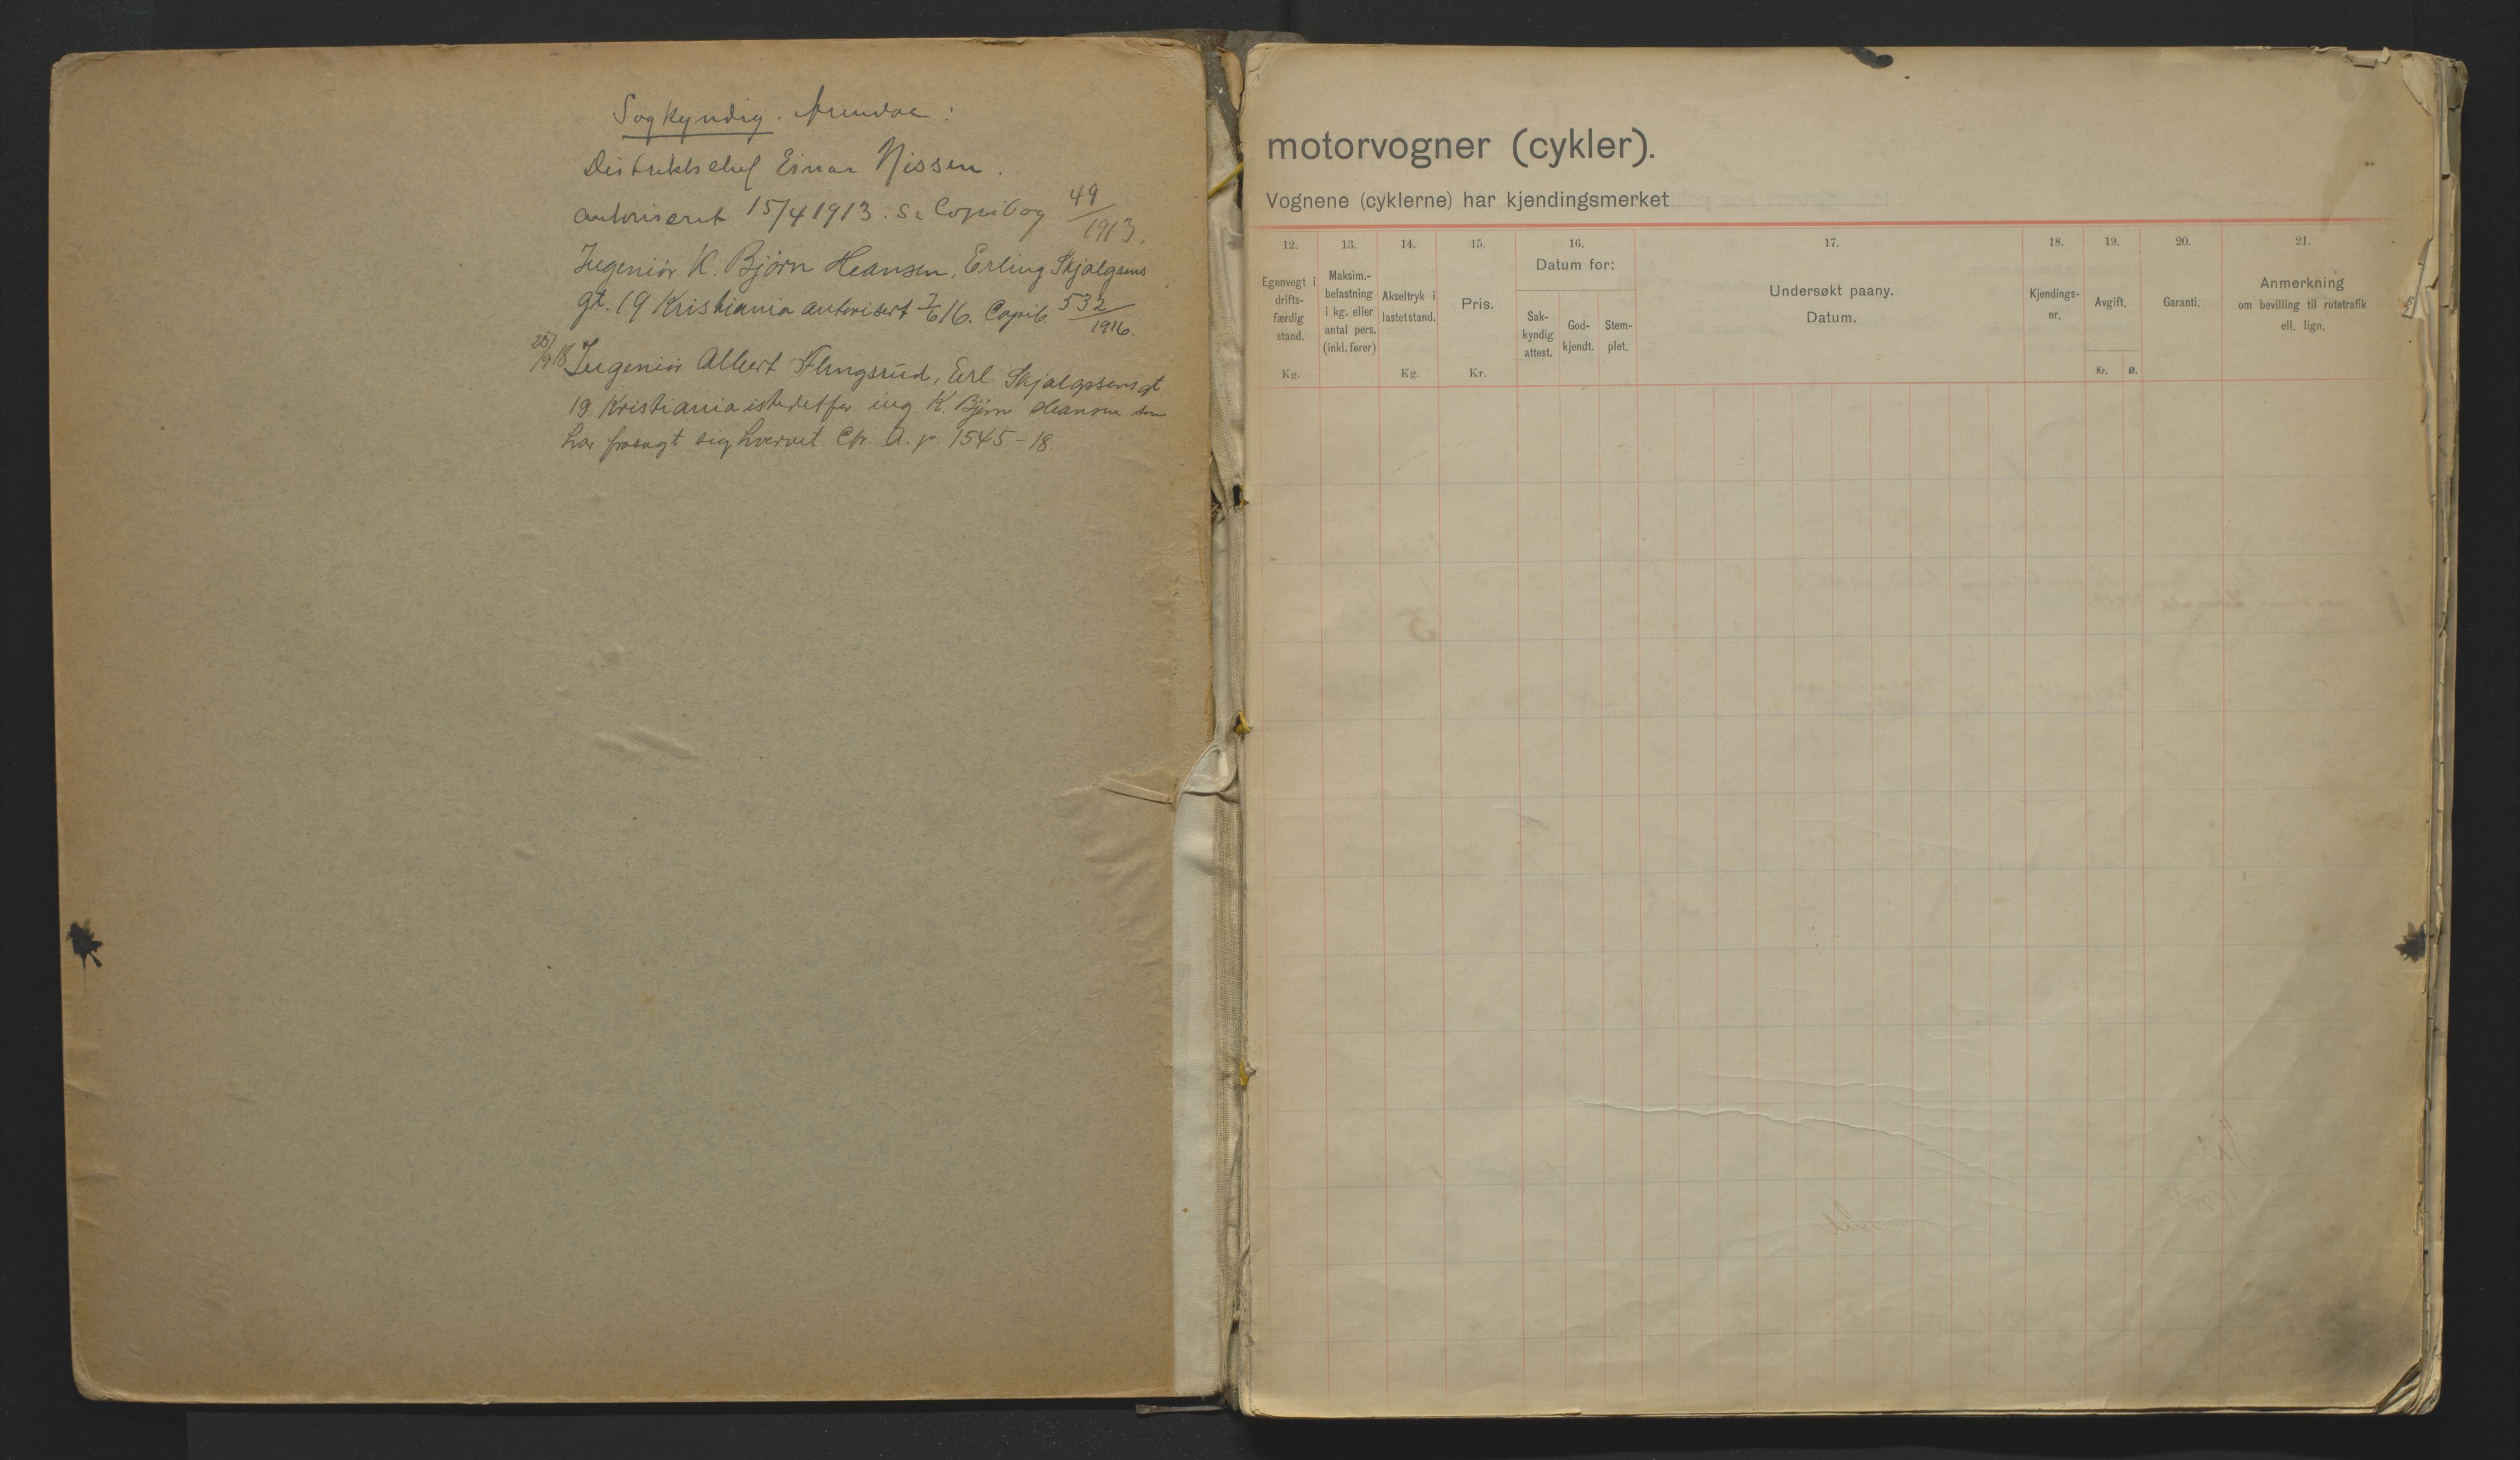 Sagkyndig.
Distriktschef Einar Nissen.
autoriseret 15/4 1913. Se Copibog 49/1913.
Ingeniör K. Bjørn Hansen, Erling Skjalgsens
gt. 19 Kristiania autorisert 7/6 16. Copib. 532/1916.
25/9 18 Ingeniör Albert Flingsrud, Erl. Skjalgsensgt
19 Kristiania istedetfor ing K. Bjørn Hansen som
har frasagt sig hvervet. A. p. 1545-18.
motorvogner (cykler).
Vognene (cyklerne) har kjendingsmerket
12.
Egenvegt i
drifts-
færdig
stand.
Kg.
13.
Maksim.-
belastning
i kg. eller
antal pers.
(inkl. fører)
14.
Akseltryk i
lastet stand.
Kg.
15.
Pris.
Kr.
16.
Datum for:
Sak-
kyndig
attest.
God-
kjendt.
Stem-
plet.
17.
Undersøkt paany.
Datum.
18.
Kjendings-
nr.
19.
Avgift.
Kr. Ø.
20.
Garanti.
21.
Anmerkning
om bevilling til rutetrafik
ell. lign.